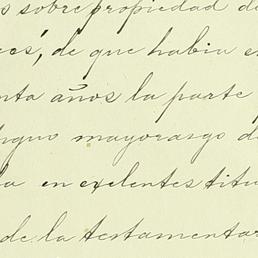 s sobre propiedad d
ces, de que habia e
nta años la parte
tiguo mayorasgo d
la en exelentes titu
de la testamentar